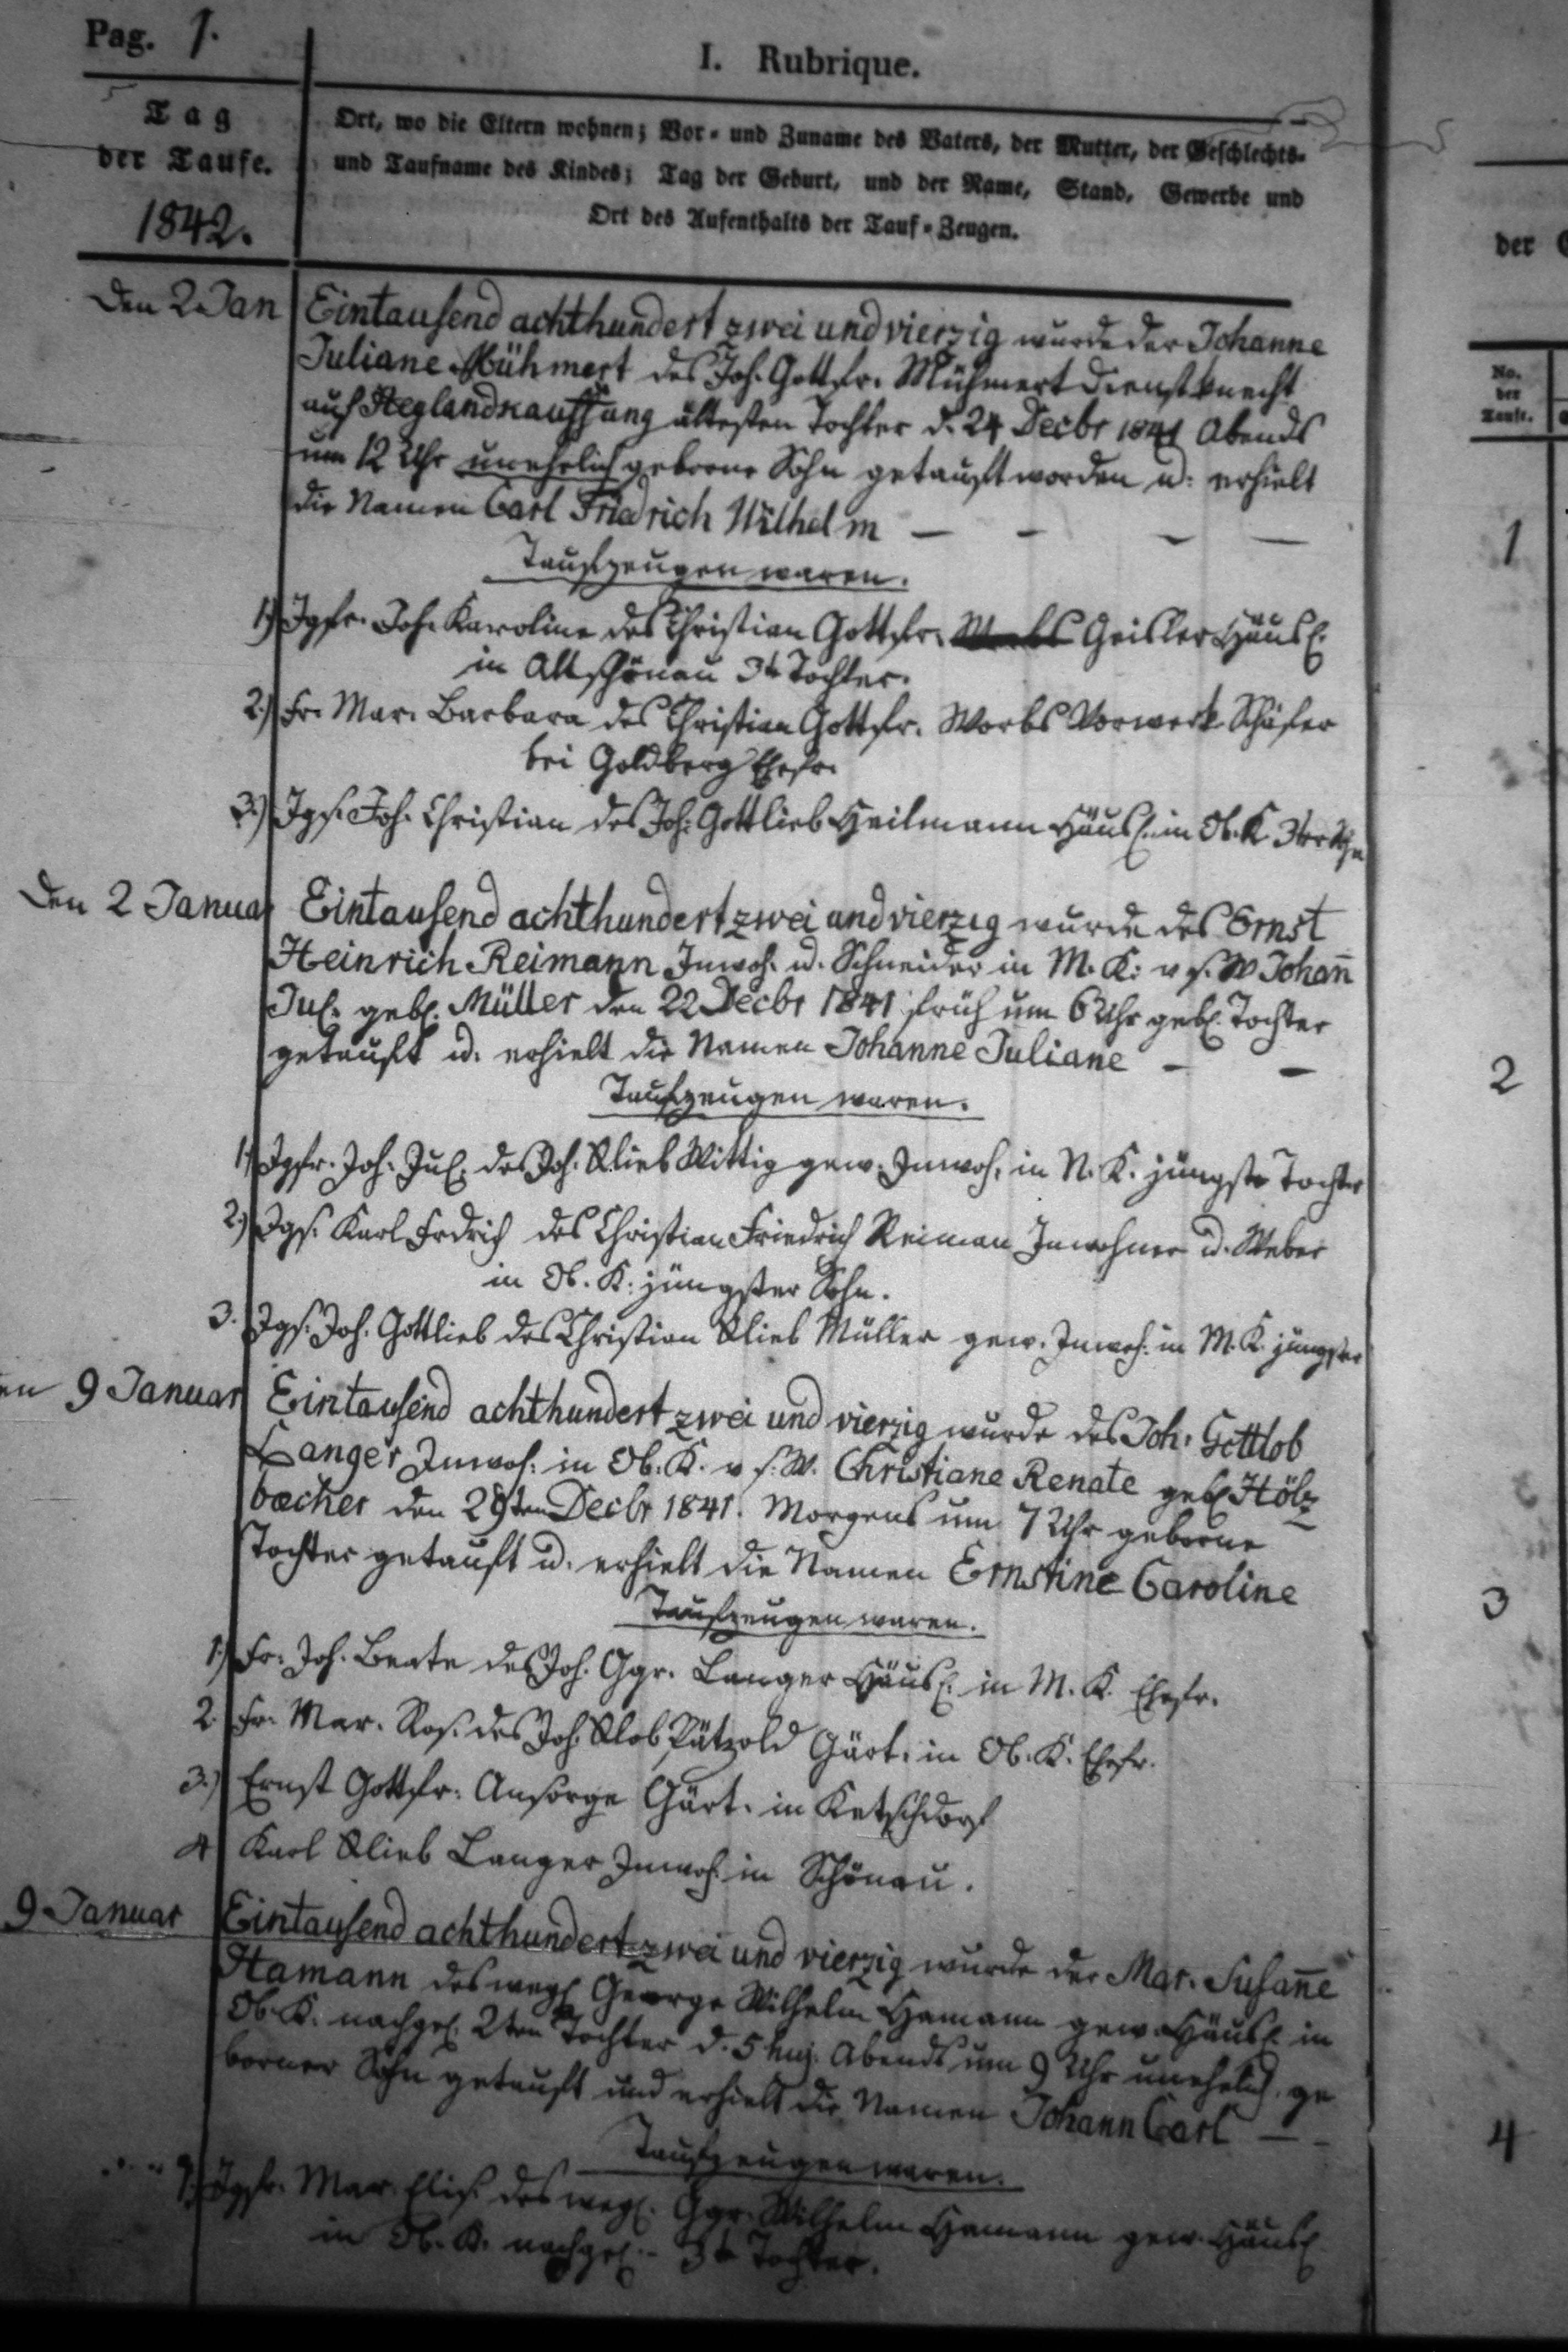 Pag. 1.
I. Rubrique.
Tag
der Taufe.
1842.
Ort, wo die Eltern wohnen; Vor- und Zuname des Vaters, der Mutter, der Geschlechts-
und Taufname des Kindes; Tag der Geburt, und der Name, Stand, Gewerbe und
Ort des Aufenthalts der Tauf-Zeugen.
der
No.
der
Taufe.
Den 2 Jan Eintausend achthundert zwei und vierzig wurde der Johanne
Juliane Mühmert des Joh. Gottfr. Mühmert Dienstknecht
auf ältesten Tochter d. 24 Decbr 1841 Abends
um 12 Uhr unehelich geborne Sohn getauft worden u: erhielt
die Namen Carl Friedrich Wilhelm — — — —
1
Taufzeugen waren.
1.) Igfr. Joh. Karoline des Christian Gottfr. Geisler Häusl.
in Altschönau 3t Tochter.
2.) Fr. Mar. Barbara des Christian Gottfr. Worbs Vorwerk Schäfer
bei Goldberg Ehefr.
3.) Igs. Joh. Christian des Joh. Gottlieb Heilmann Häusl. in Ob. K. 3ter
Den 2 Januar Eintausend achthundert zwei und vierzig wurde des Ernst
Heinrich Reimann Inwoh. u. Schneider in M. K: v s. W Johan̄
Jul. gebl. Müller den 22 Decbr 1841 früh um 6 Uhr gebl. Tochter
getauft u. erhielt die Namen Johanne Juliane — —
2
Taufzeugen waren.
1.) Igfr. Joh. Jul. des Joh. Glieb Wittig gew. Inwoh. in N. K. jüngste Tochter
2.) Igs. Karl Frdrich des Christian Friedrich Reiman Inwohner u. Weber
in Ob. K. jüngster Sohn.
3. Igs. Joh. Gottlieb des Christian Glieb Müller gew. Inwoh. in M. K. jüngster
9 Januar Eintausend achthundert zwei und vierzig wurde des Joh. Gottlob
Langer Inwoh. in Ob. K. v s. W. Christiane Renate gebl Hölz
becher den 29ten Decbr 1841. Morgens um 7 Uhr geborne
Tochter getauft u. erhielt die Namen Ernstine Caroline
3
Taufzeugen waren.
1.) Fr. Joh. Beate des Joh. Ggr. Langer Häusl. in M. K. Ehefr.
2. Fr. Mar. Ros. des Joh. Glob Pätzold Gärt. in Ob. K. Ehefr.
3.) Ernst Gottfr. Ansorge Gärt. in Ketschdorf
4 Karl Glieb Langer Inwoh. in Schönau.
9 Januar Eintausend achthundert zwei und vierzig wurde der Mar. Susan̄e
Hamann des wegl George Wilhelm Hamann gew. Häusl. in
Ob. K. nachgel. 2ten Tochter d. 5 huj. Abends um 9 Uhr unehelich. ge
borner Sohn getauft und erhielt die Namen Johann Carl — —
4
Taufzeugen waren.
1.) Igfr. Mar. Elis. des wegl. Ggr. Wilhelm Hamann gew. Häusl
in Ob. K. nachgel. 3t Tochter.